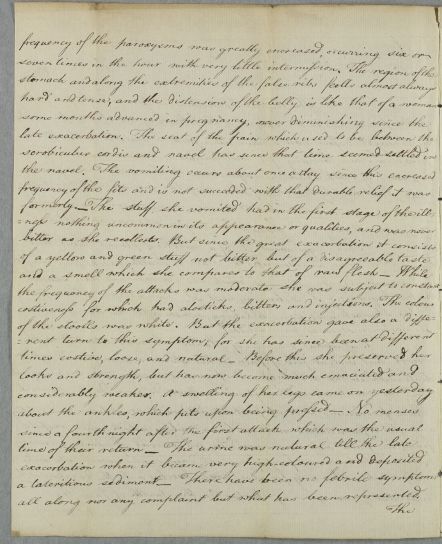 frequency of the paroxysms was greatly encreased, occurring six or
seven times in the hour with very little intermission. The region of the
stomach and along the extremities of the false ribs feels almost always
hard and tense, and the distension of the belly is like that of a woman
some months advanced in pregnancy, never diminishing since the
late exacerbation. The seat of the pain which used to be between the
scrobiculus cordis and navel has since that time seemed settled in
the navel. The vomiting occurs about once a day since this encreased
frequency of the fits and is not succeeded with that durable relief it was
formerly — The stuff she vomited had in the first stage of the ill-
=ness nothing uncommon in its appearance or qualities, and was never
bitter as she recollects. But since the great exacerbation it consists
of a yellow and green stuff not bitter but of a disagreeable taste
and a smell which she compares to that of raw flesh — While
the frequency of the attacks was moderate she was subject to constant
costiveness for which had aloeticks, bitters and injections. The colour
of the stools was white. But the exacerbation gave also a diffe-
=rent turn to this symptom, for she has since been at different
times costive, loose, and natural — Before this she preserved her
looks and strength, but has now become much emaciated and
considerably weaker. A swelling of her legs came on yesterday
about the ankles, which pits upon being pressed —. No menses
since a fourthnight after the first attack which was the usual
time of their return — The urine was natural till the late
exacerbation when it became very high-coloured and deposited
a lateritious sediment — There have been no febrile symptoms
all along nor any complaint but what has been represented.
The